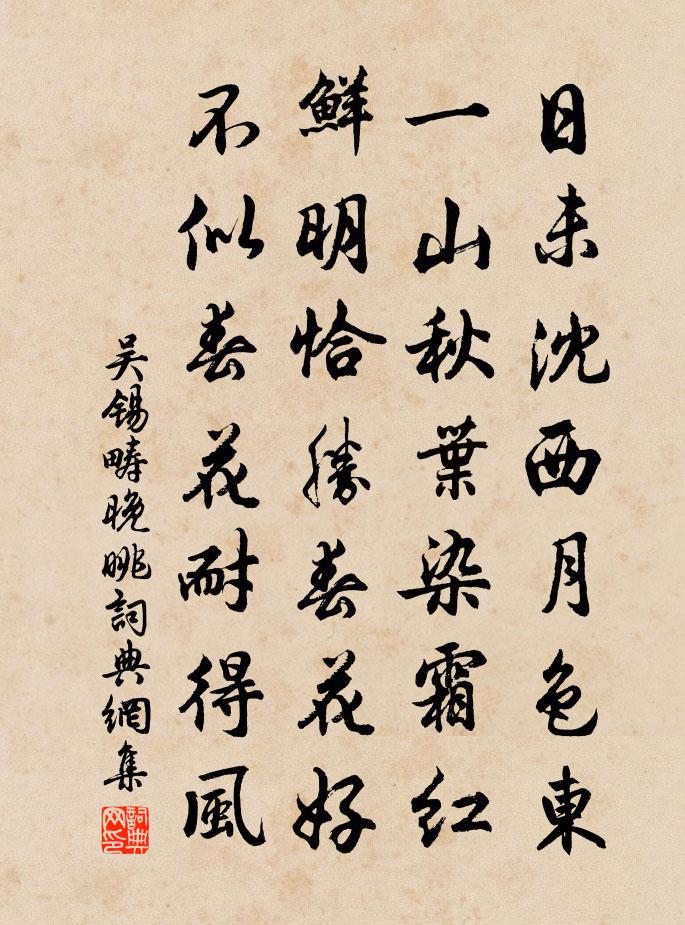 日未沈西月色東
一山秋葉染霜红
鮮明恰勝春花好
不似春花耐得風
吴锡畴晚眺詞典網集
詞典网印